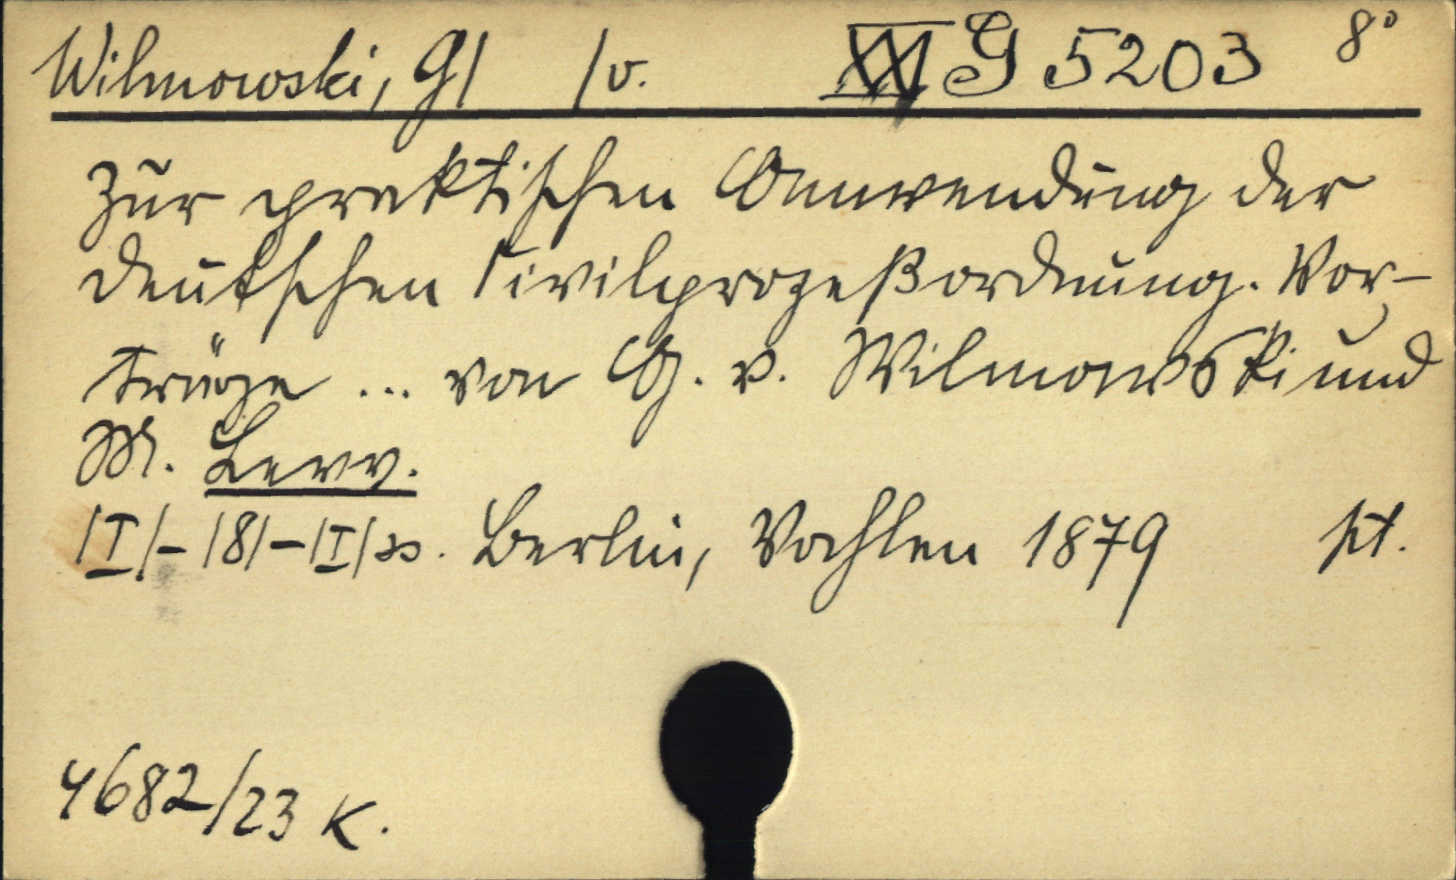 Wilmowski, G/ /v. G 5203 8°
Zur praktischen Anwendung der
deutschen Civilprozeßordnung. Vor-
träge ... von G. v. Wilmowski und
M. Levy.
/I/-/8/-/I/ Berlin, Vahlen 1879
4682/23 K.